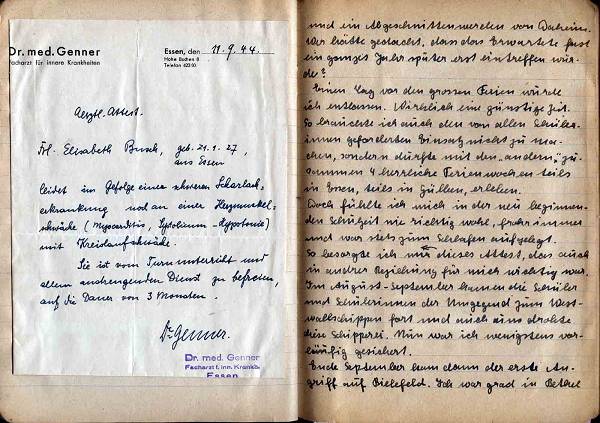 Dr. med. Genner
Facharzt für innere Krankheiten
Essen, den 11.9.44.
Hohe Buchen 8
Telefon 42310
Aerztl. Attest.
Frl. Elisabeth Busch, geb. 21.1.27,
aus Essen
leidet im Gefolge einer schweren Scharlach-
erkrankung noch an einer Herzmuskel-
schwäche (Myocarditis, Systolicum - Hypotonie)
mit Kreislaufschwäche.
Sie ist vom Turnunterricht und
allem anstrengenden Dienst zu befreien,
auf die Dauer von 3 Monaten.
Dr Genner.
Dr. med. Genner
Facharzt f. inn. Krankh.
Essen
und ein Abgeschnittenwerden von Daheim.
Wer hätte gedacht, dass das Erwartete fast
ein ganzes Jahr später erst eintreffen wür-
de?
Einen Tag vor den grossen Ferien wurde
ich entlassen. Wirklich eine günstige Zeit.
So brauchte ich auch den von allen Schüler-
innen geforderten Einsatz nicht zu ma-
chen, sondern durfte mit den "andern" zu-
sammen 4 herrliche Ferienwochen teils
in Essen, teils in Züllen, erleben.
Doch fühlte ich mich in der neu beginnen-
den Schulzeit nie richtig wohl, fror immer
und war stets zum Schlafen aufgelegt.
So besorgte ich mir dieses Attest, das auch
in andrer Beziehung für mich wichtig war.
Im August-September kamen die Schüler
und Schülerinnen der Umgegend zum West-
wallschippen fort und auch uns drohte
diese Schipperei. Nun war ich wenigstens vor-
läufig gesichert.
Ende September kam dann der erste An-
griff auf Bielefeld. Ich war grad in Bethel